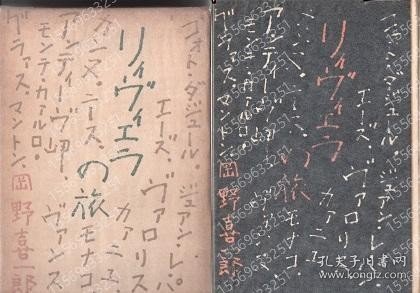 コォト・ダジュール。ジュアン・レ・パ
エーズ、ヴァロリス
リイヴィエラの旅
カァニユ
カンヌ。ニース、モナコ
アンティーヴ岬。ヴァンス
モンテ・カァルロ。
グラァス、マントン。
岡野喜一郎
コォト・ダジュール。ジュアン・レ・パ
エーズ、ヴァロリス
リイヴィエラの旅
カァニユ
ニース、モナコ
アンティーヴ岬。
グラァス、マントン
岡野喜一郎
15569653251
孔夫子旧书网